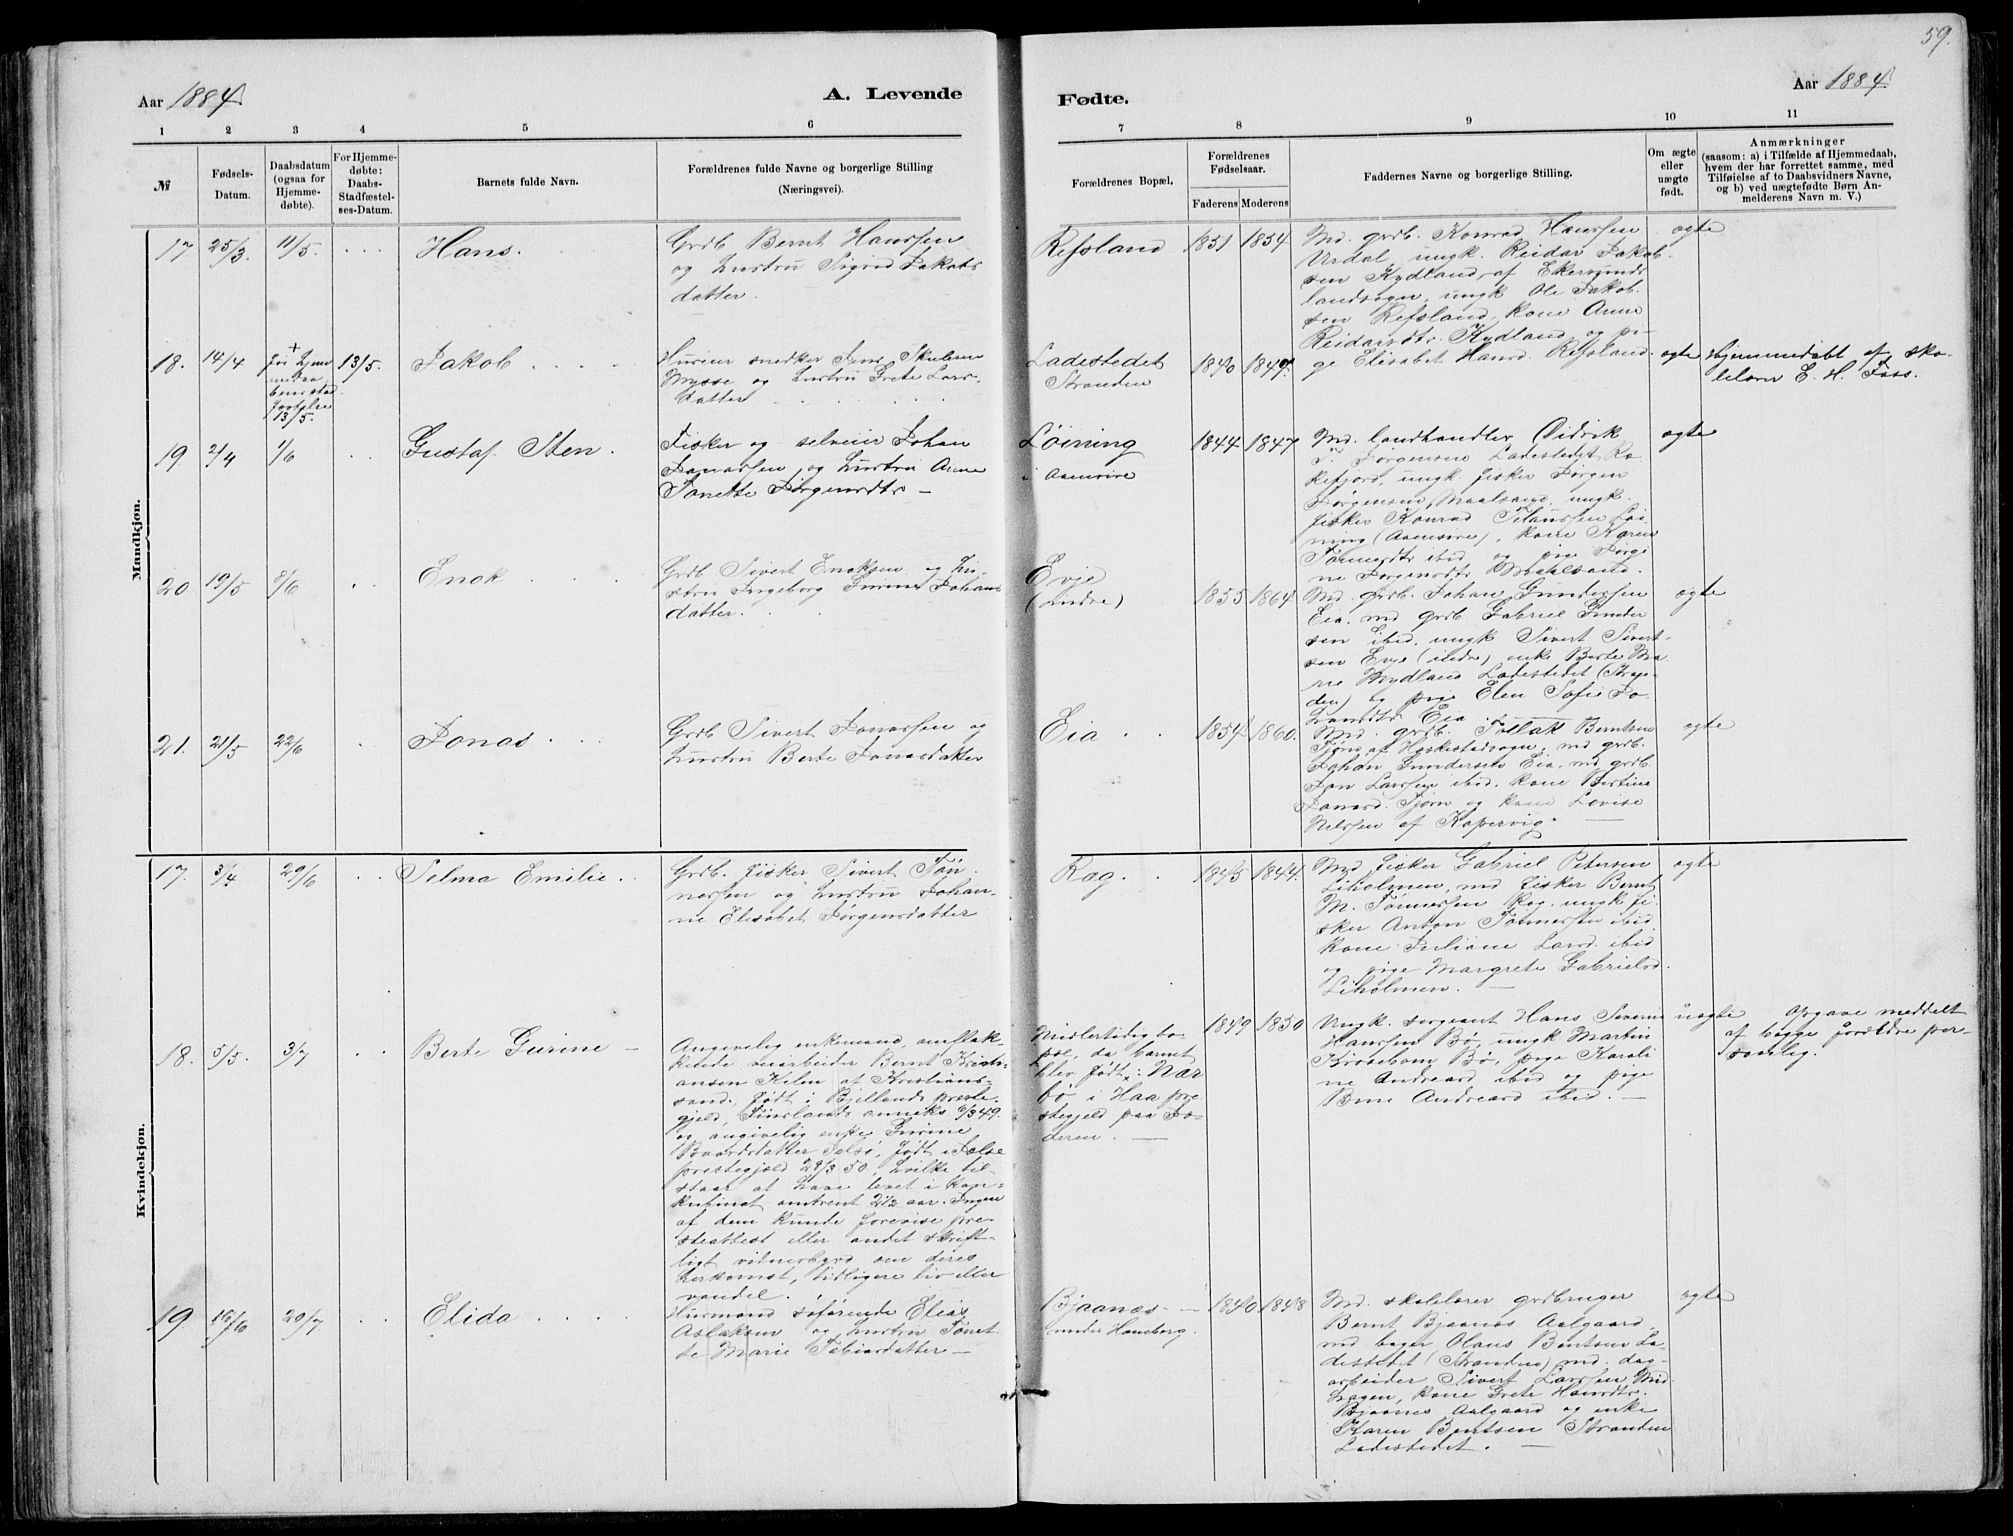 59.
Aar 1884.
A. Levende
Fødte.
Aar 1884.
1 2 3 4 5 6 7 8 9 10 11
№
Fødsels-Datum.
Daabsdatum (ogsaa for Hjemme-døbte).
For Hjemme-døbte: Daabs-Stadfæstel-ses-Datum.
Barnets fulde Navn.
Forældrenes fulde Navne og borgerlige Stilling
(Næringsvei).
Forældrenes Bopæl.
Forældrenes Fødselsaar.
Faderens Moderens
Faddernes Navne og borgerlige Stilling.
Om ægte eller uægte født.
Anmærkninger
(saasom: a) i Tilfælde af Hjemmedaab,
hvem der har forrettet samme, med
Tilføielse af to Daabsvidners Navne,
og b) ved uægtefødte Børn An-
melderens Navn m. V.)
Mandkjøn.
17 25/3 11/5. Hans.
Grdb Bernt Hanssen
og hustru Sigrid Jakobs
datter.
Refsland 1851 1854
Md. grdb. Konrad Hanssen
Urdal, ungk. Reidar Jakob-
sen Kydland af Ekersunds
landsogn, ungk Ole Jakob-
sen Refsland, kone Anne
Reidarsdtr Kydland og pi-
ge Elisabet Hansd. Refsland.
ægte
18. 14/4
13/5. 13/5. Jakob
snedker Jens Skulesen
Mysse og hustru Grete Lars-
datter
Ladestedet
Stranden
1840 1849.
ægte
Hjemmedøbt af sko-
lelærer E. H. Foss.
19 2/4 1/6 Gustaf Sten.
Fisker og selveier Johan
Jonassen og hustru Anne
Tonette Jørgensdtr —
Løining
i Aaensire
1844 1847
Md. landhandler Didrik
T. Jørgensen Ladestedet Ra-
kefjord, ungk. fisker Jørgen
Jørgensen Maalsand, ungk.
fisker Konrad Hanssen Løi-
ning (Aaensire), kone Karen
Tønnesdtr ibid og pige Jørgi-
ne Jørgensdtr Maalsand.
ægte
20 19/5 8/6 Enok
Grdb Sivert Enoksen og hu-
stru Ingeborg Gurine Johans
datter.
Evje
(indre)
1855 1864
Md. grdb. Johan Gundersen
Eia, md grdb Gabriel Gunder
sen ibid. ungk Sivert Sivert-
sen Evje (indre) enke Berte Ma
rie Mydland Ladestedet (Stran-
den) og pige Elen Sofie Jo-
hansdtr Eia.
ægte
21. 21/5 22/6 Jonas
Grdb Sivert Jonassen og
hustru Berte Jonasdatter
Eia 1854 1860.
Md. grdb. Tollak Berntsen
Tjørn af Heskestadsogn, md grdb.
Johan Gundersen Eia, md grdb
Jon Larssen ibid. kone Bertine
Jonasd. Tjørn og kone Lovise
Nilssen af Kopervig. —
ægte
Kvindekjøn.
17. 3/4 29/6 Selma Emilie.
Grdb. fisker Sivert Tøn-
nessen og hustru Johan-
ne Elisabet Jørgensdatter
Rag. 1845 1844.
Md fisker Gabriel Petersen
Liholmen, md fisker Bernt
M. Tønnessen Rag. ungk fi-
sker Anton Tønnessen ibid
kone Juliane Larsd. ibid
og pige Margrete Gabrielsd.
Liholmen. —
ægte
18. 5/5. 3/7 Berte Gurine —
Angivelig enkemand, omflak-
kende veiarbeider Bernt Kristi-
ansen Kilen af Kristians-
sand, født i Bjellands preste-
gjeld, Finslands anneks 6/3 49.
og angivelig enke Gurine
Baardsdatter Jelsø, født i Jelse
prestegjeld 29/3 50, hvilke til-
staar at have levet i kon-
kubinat omtrent 2 1/2 aar. Ingen
af dem kunde forevise pre-
steattest eller andet skrift-
ligt vidnesbyrd om deres
herkomst, tidligere liv eller
vandel.
Midlertidig bo-
pæl, da barnet
blev født: Nær
bø i Haa pre
stegjeld paa Jæ-
deren. —
1849 1850
Ungk. sergeant Hans Severin
Hanssen Bø, ungk Martin
Kirkebø Bø, pige Karoli
ne Andreasd ibid og pige
Andreasd ibid. —
uægte
Opgave meddelt
af begge forældre per-
sonlig.
19. 16/6 20/7 Elida
Husmand søfarende Elias
Aslaksen og hustru Tønet-
te Marie Tobiasdatter —
Bjaanes —
under Haneberg.
1840 1848
Md. skolelærer grdbruger
Bernt Bjaanes Aalgaard,
md bager Olaus Bentsen La-
destedet (Stranden) md. dag-
arbeider Sivert Larssen Mid
hagen, kone Grete Hansdtr.
Bjaanes Aalgaard og enke
Karen Bentsen Stranden
Ladestedet. —
ægte